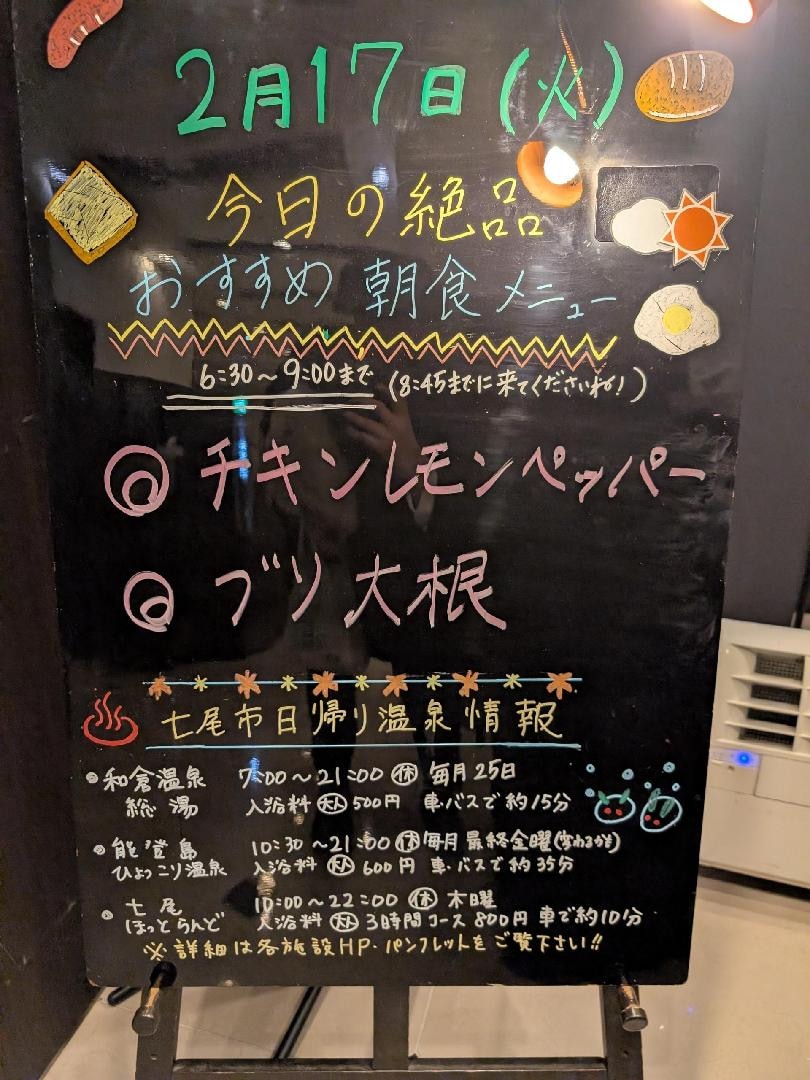 2月17日(火)
今日の絶品
おすすめ 朝食 メニュー
6:30～9:00まで (8:45までに来てくださいね!)
◎ チキンレモンペッパー
◎ ブリ大根
七尾市日帰り温泉情報
和倉温泉 7:00～21:00 休 毎月25日
総湯 入浴料 大人 500円 車・バスで約15分
能登島 10:30～21:00 休 毎月最終金曜(変わるかも)
ひょっこり温泉 入浴料 大人 600円 車・バスで約35分
七尾 10:00～22:00 休 木曜
ほっとらんど 入浴料 大人 3時間コース 800円 車で約10分
※詳細は各施設HP・パンフレットをご覧下さい!!